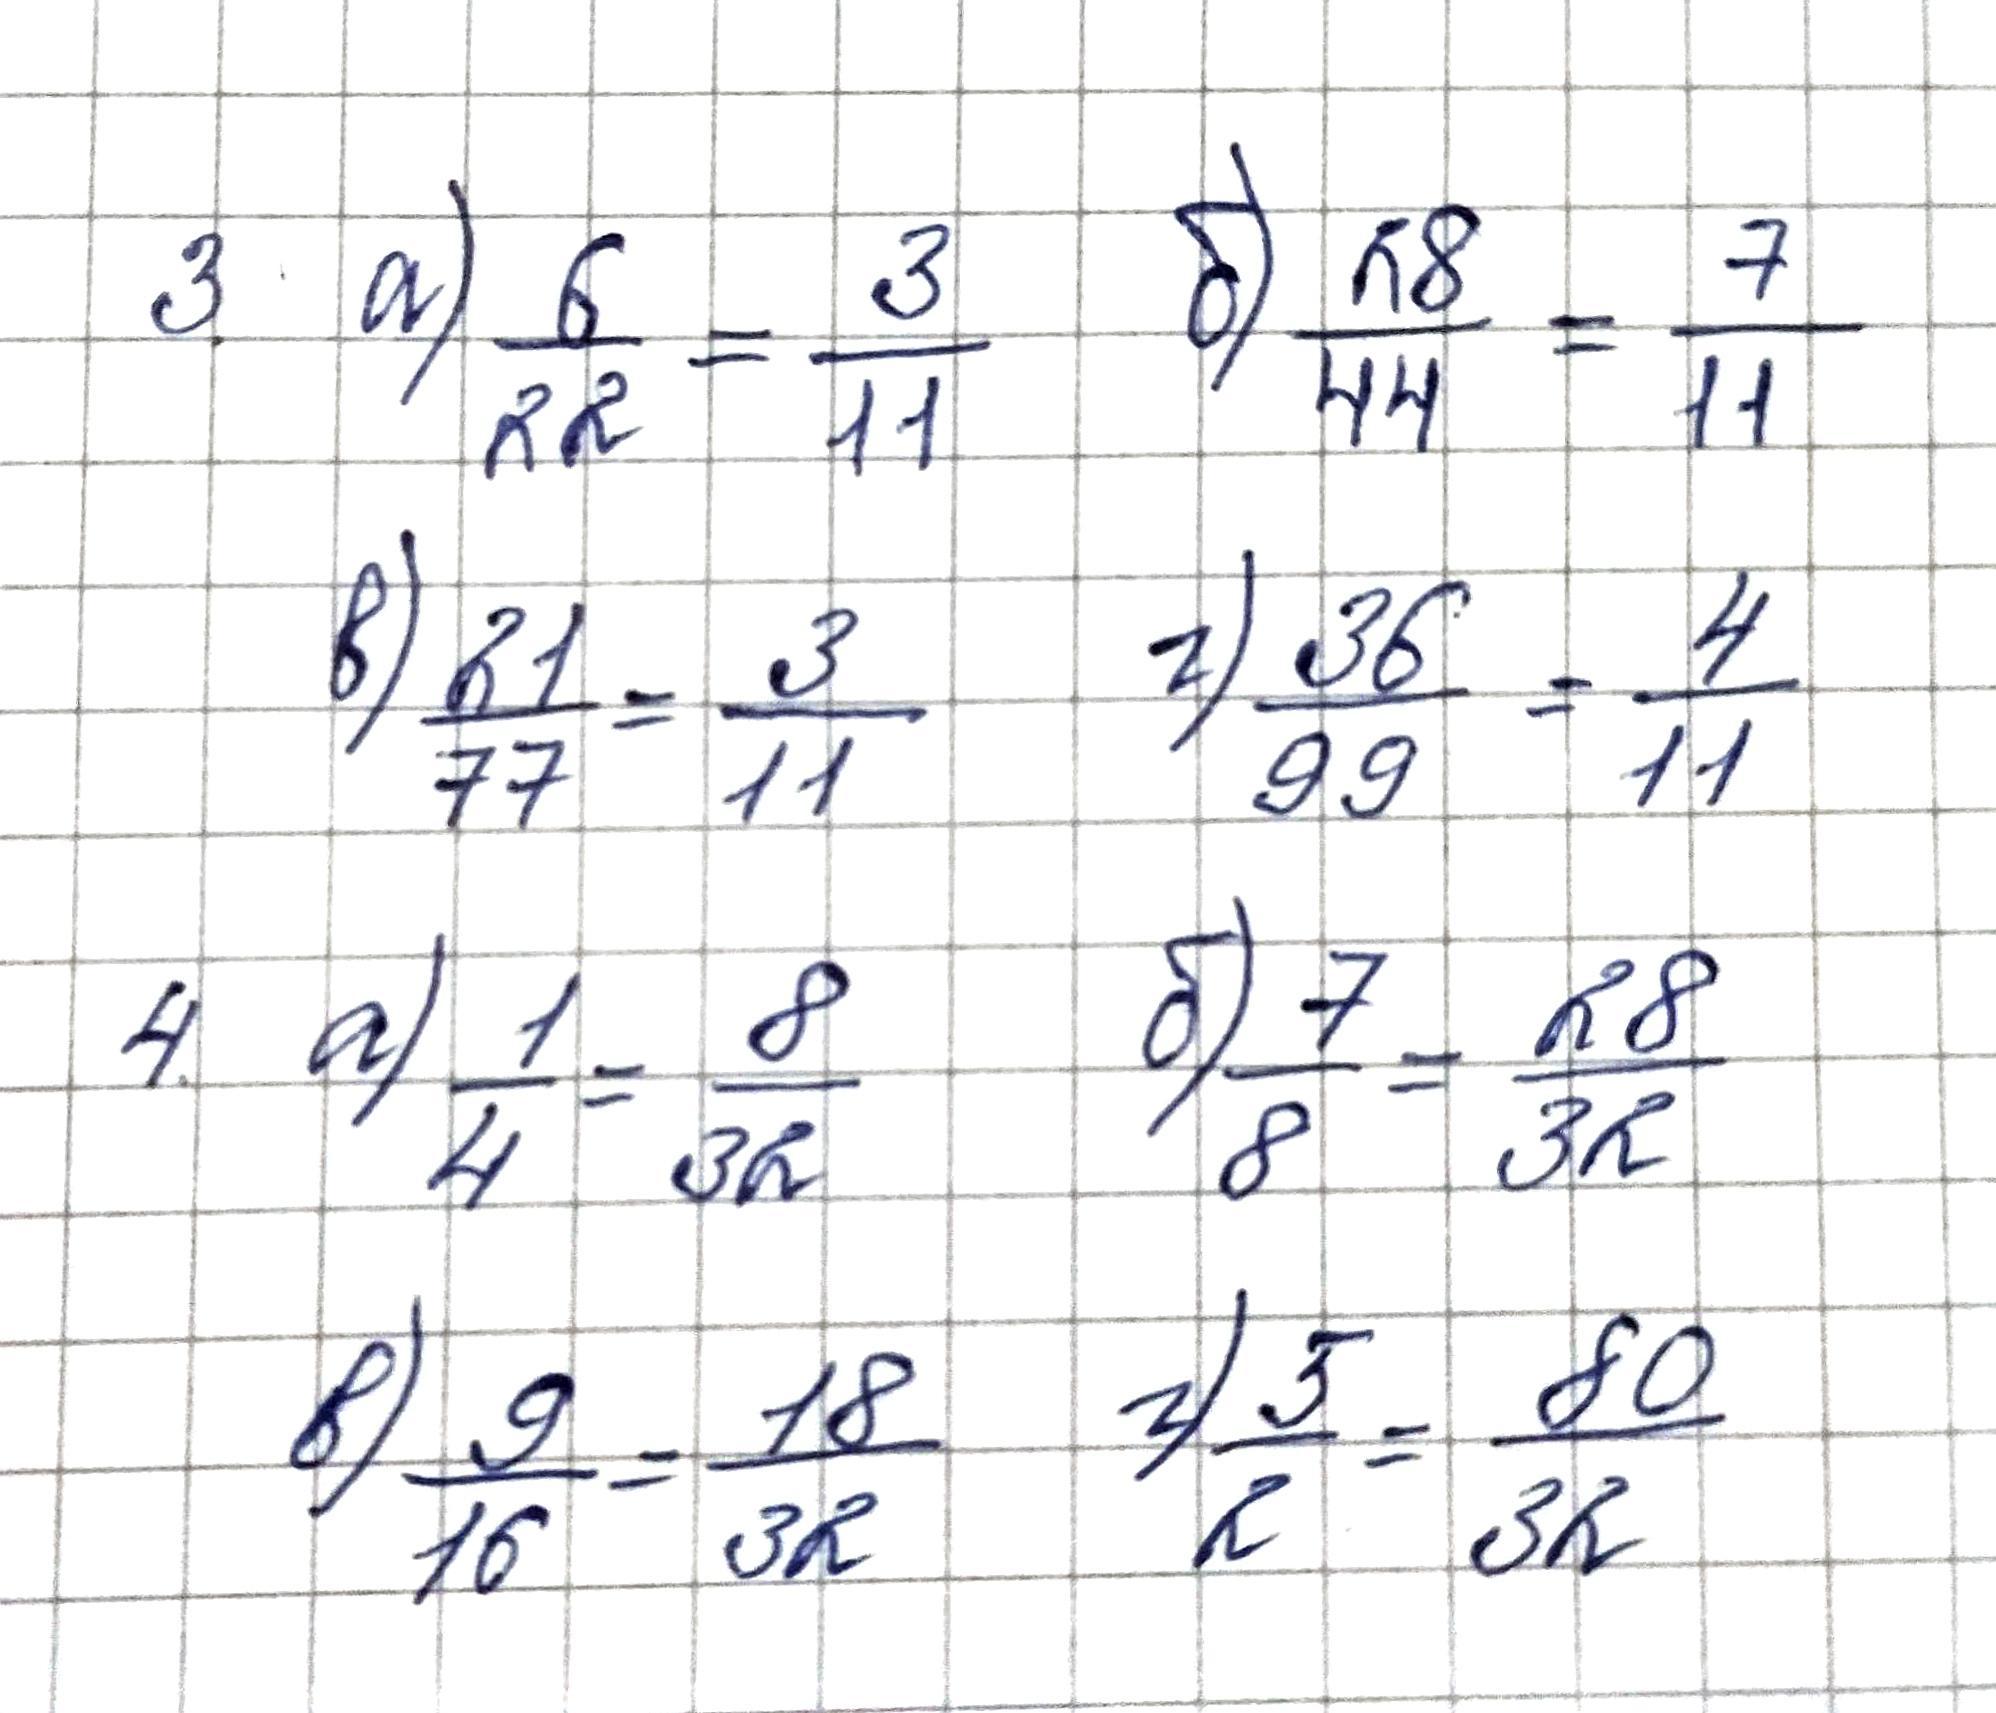 3. а) 6/22 = 3/11 б) 28/44 = 7/11
в) 21/77 = 3/11 г) 36/99 = 4/11
4. а) 1/4 = 8/32 б) 7/8 = 28/32
в) 9/16 = 18/32 г) 5/2 = 80/32